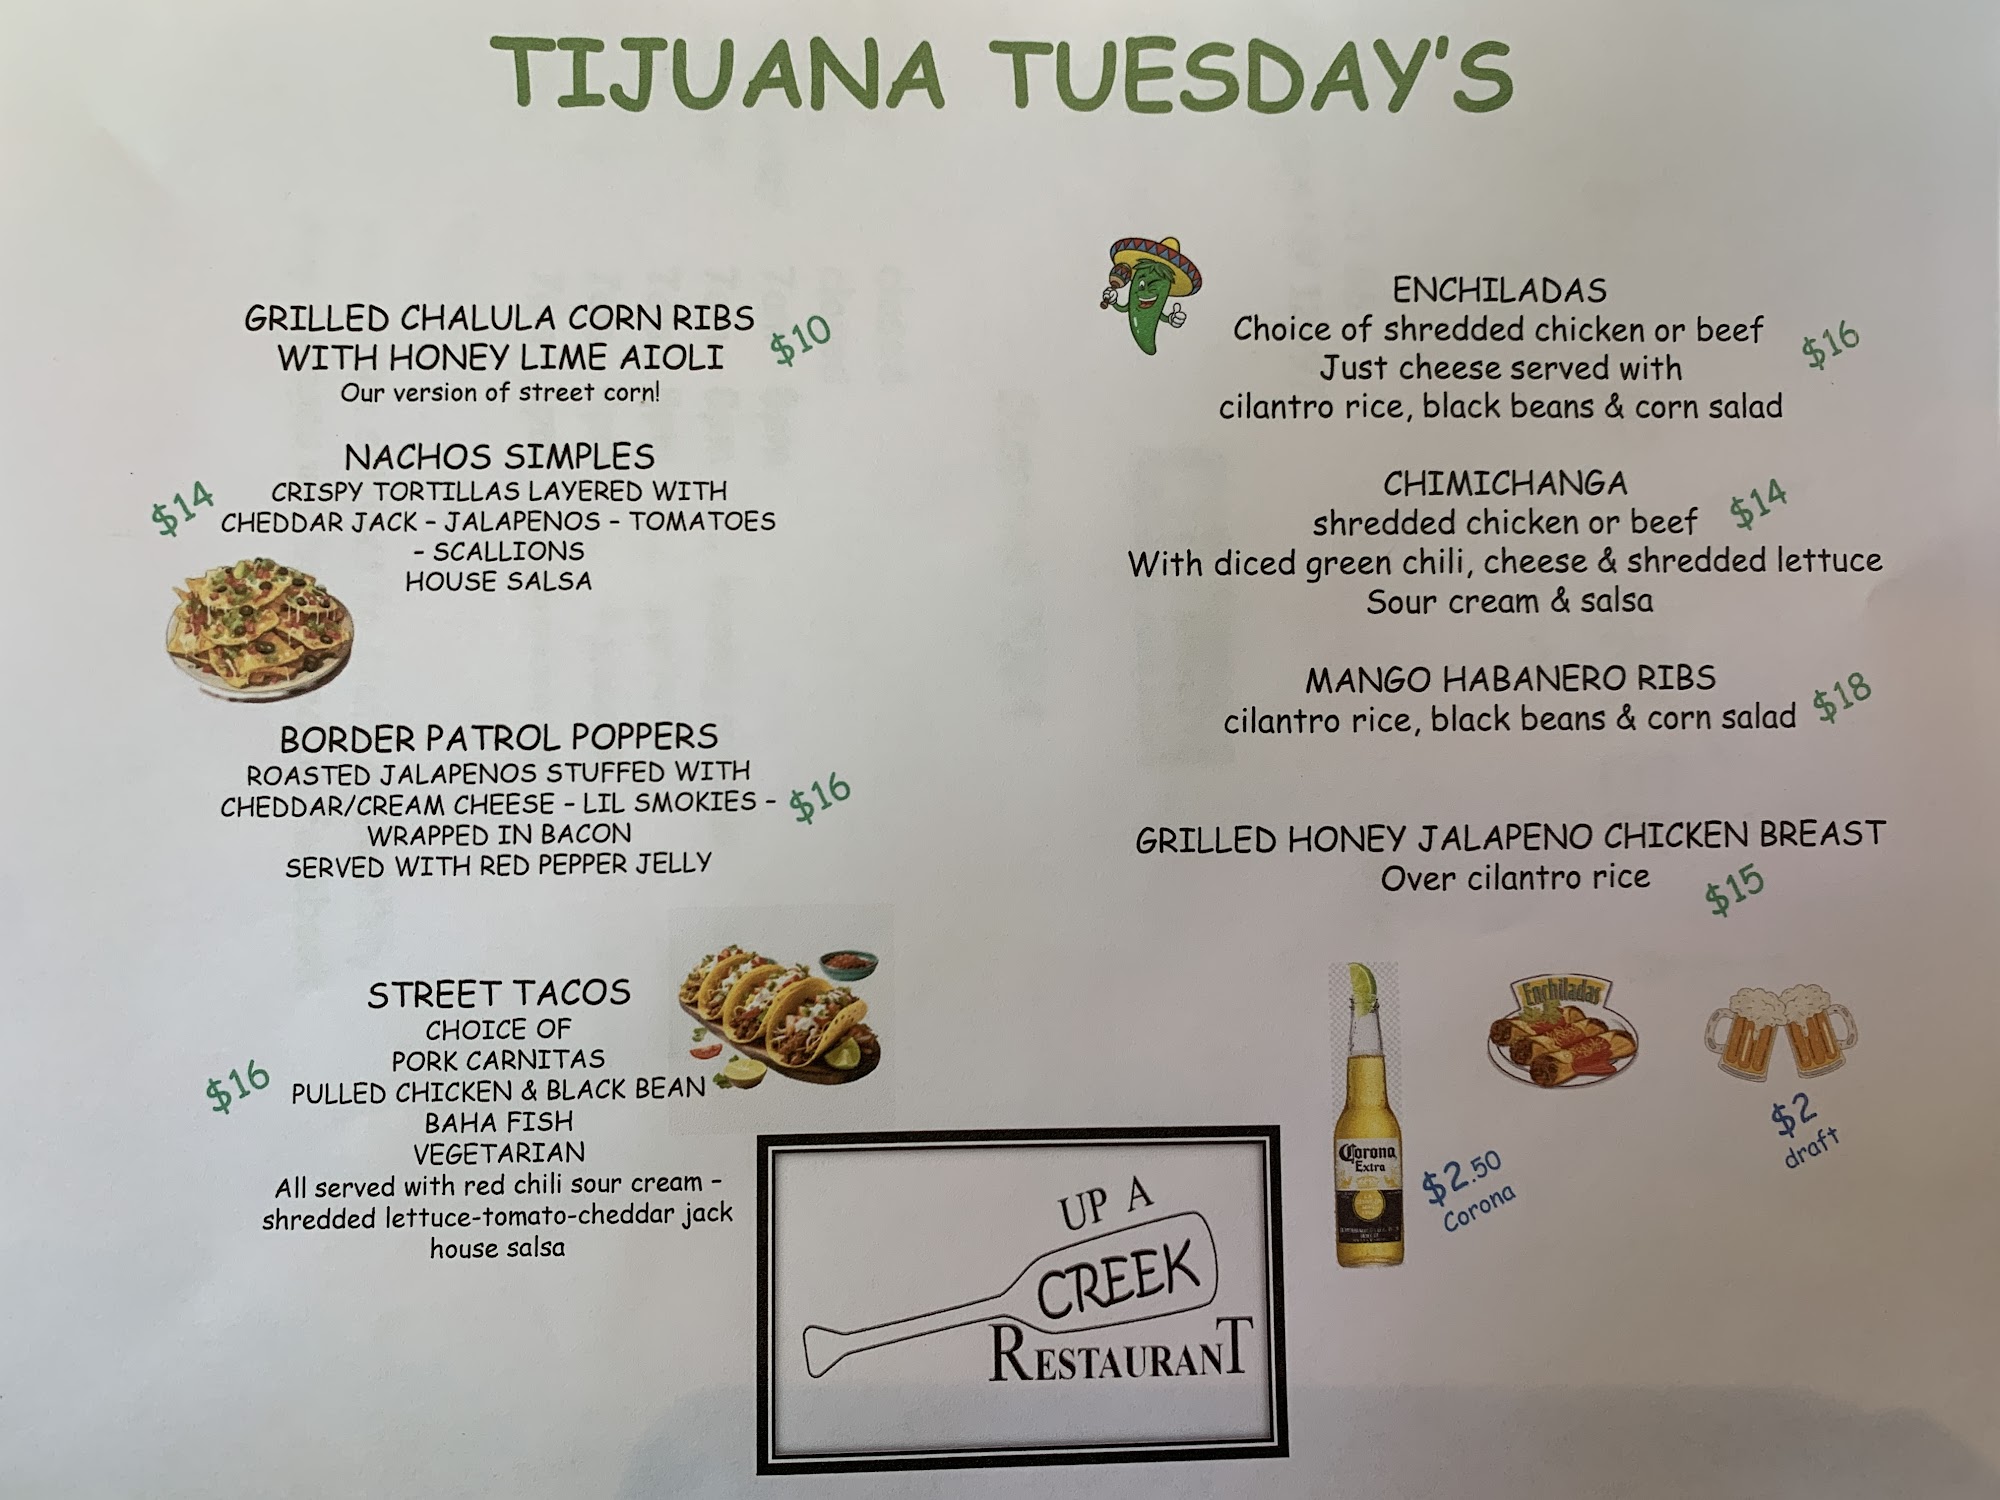 TIJUANA TUESDAY'S
GRILLED CHALULA CORN RIBS
WITH HONEY LIME AIOLI
$10
Our version of street corn!
NACHOS SIMPLES
$14
CRISPY TORTILLAS LAYERED WITH
CHEDDAR JACK – JALAPENOS – TOMATOES
– SCALLIONS
HOUSE SALSA
BORDER PATROL POPPERS
ROASTED JALAPENOS STUFFED WITH
CHEDDAR/CREAM CHEESE – LIL SMOKIES –
$16
WRAPPED IN BACON
SERVED WITH RED PEPPER JELLY
STREET TACOS
CHOICE OF
PORK CARNITAS
$16
PULLED CHICKEN & BLACK BEAN
BAHA FISH
VEGETARIAN
All served with red chili sour cream –
shredded lettuce-tomato-cheddar jack
house salsa
ENCHILADAS
Choice of shredded chicken or beef
$16
Just cheese served with
cilantro rice, black beans & corn salad
CHIMICHANGA
$14
shredded chicken or beef
With diced green chili, cheese & shredded lettuce
Sour cream & salsa
MANGO HABANERO RIBS
$18
cilantro rice, black beans & corn salad
GRILLED HONEY JALAPENO CHICKEN BREAST
Over cilantro rice
$15
Enchiladas
Corona
Extra
$2.50
Corona
$2
draft
UP A
CREEK
RESTAURANT